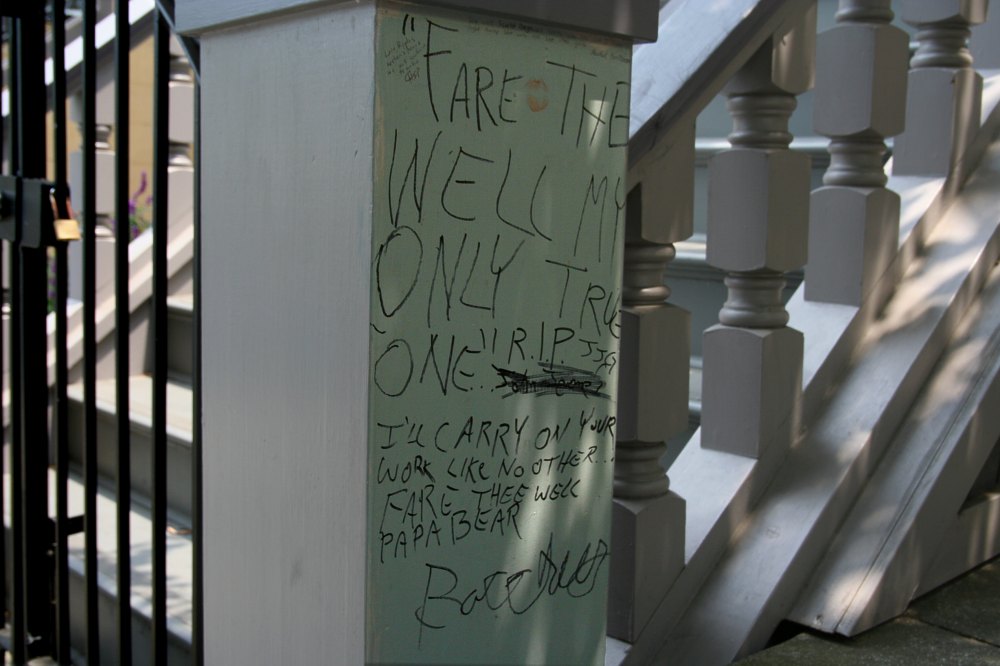 "FARE THE
WELL MY
ONLY TRUE
ONE" R.I.P. JJG
I'LL CARRY ON YOUR
WORK LIKE NO OTHER...
FARE THEE WELL
PAPA BEAR